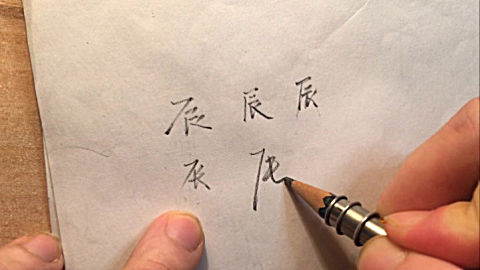 辰辰辰
辰